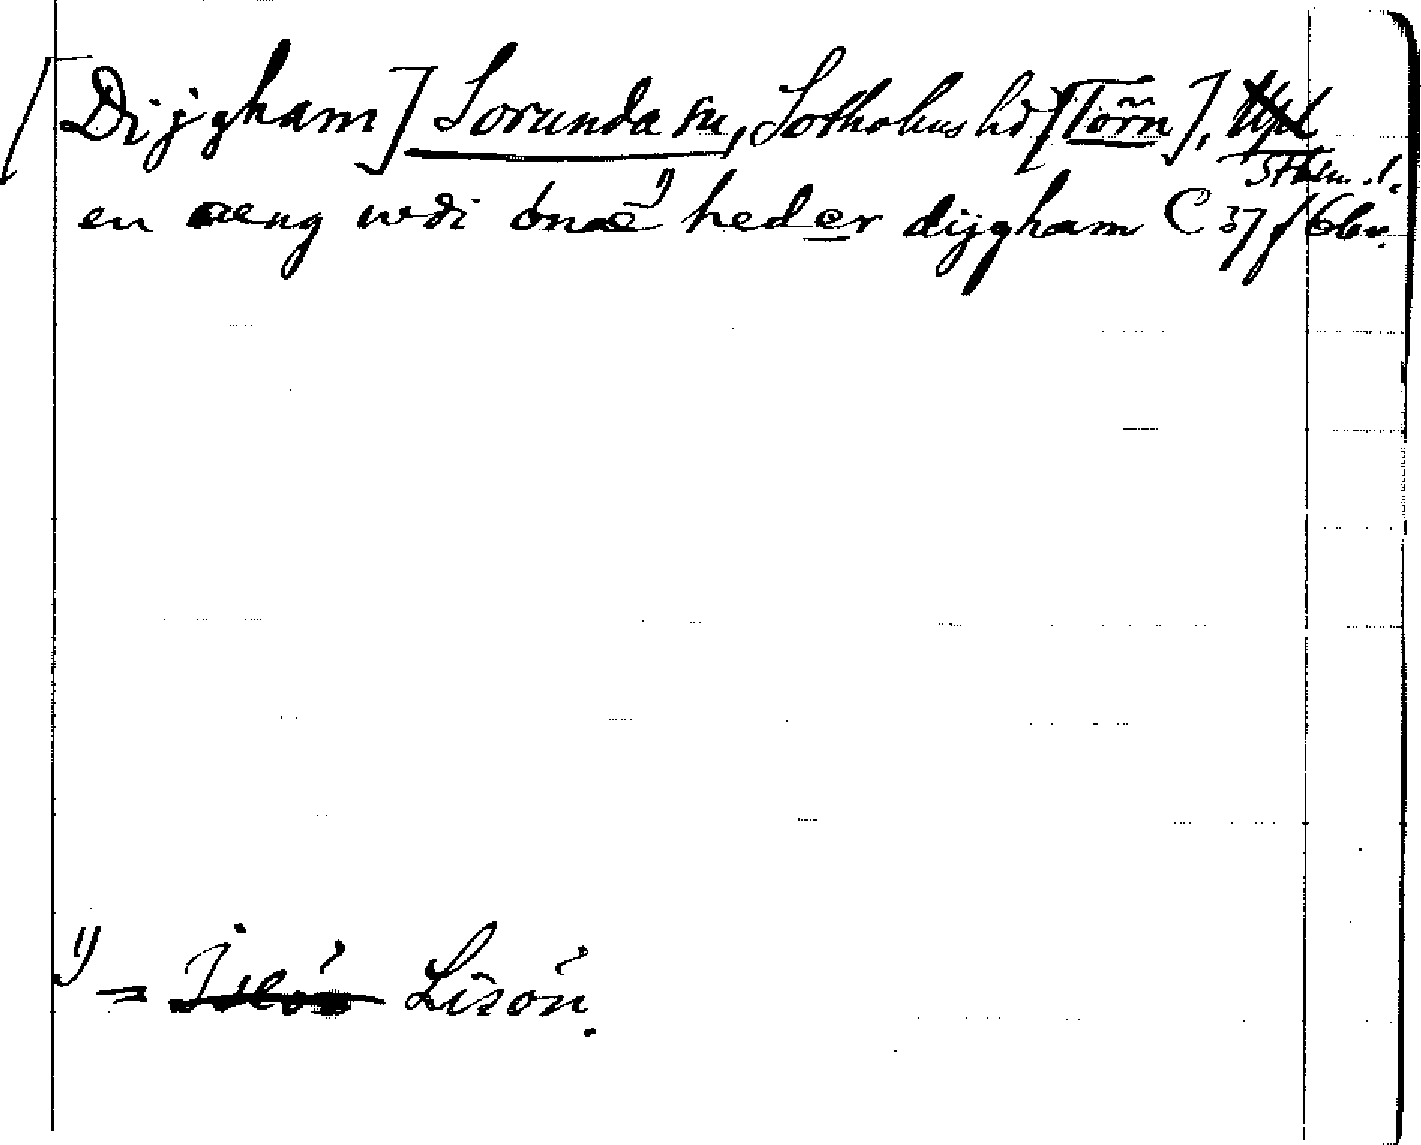 [Dijgham] Sorunda sn, Sotholms hd [Törn], Upl
Sthlm.l.
en æng wdi önæ 1) heder dijgham C 37 f 6 bv.
1) = Lisön.